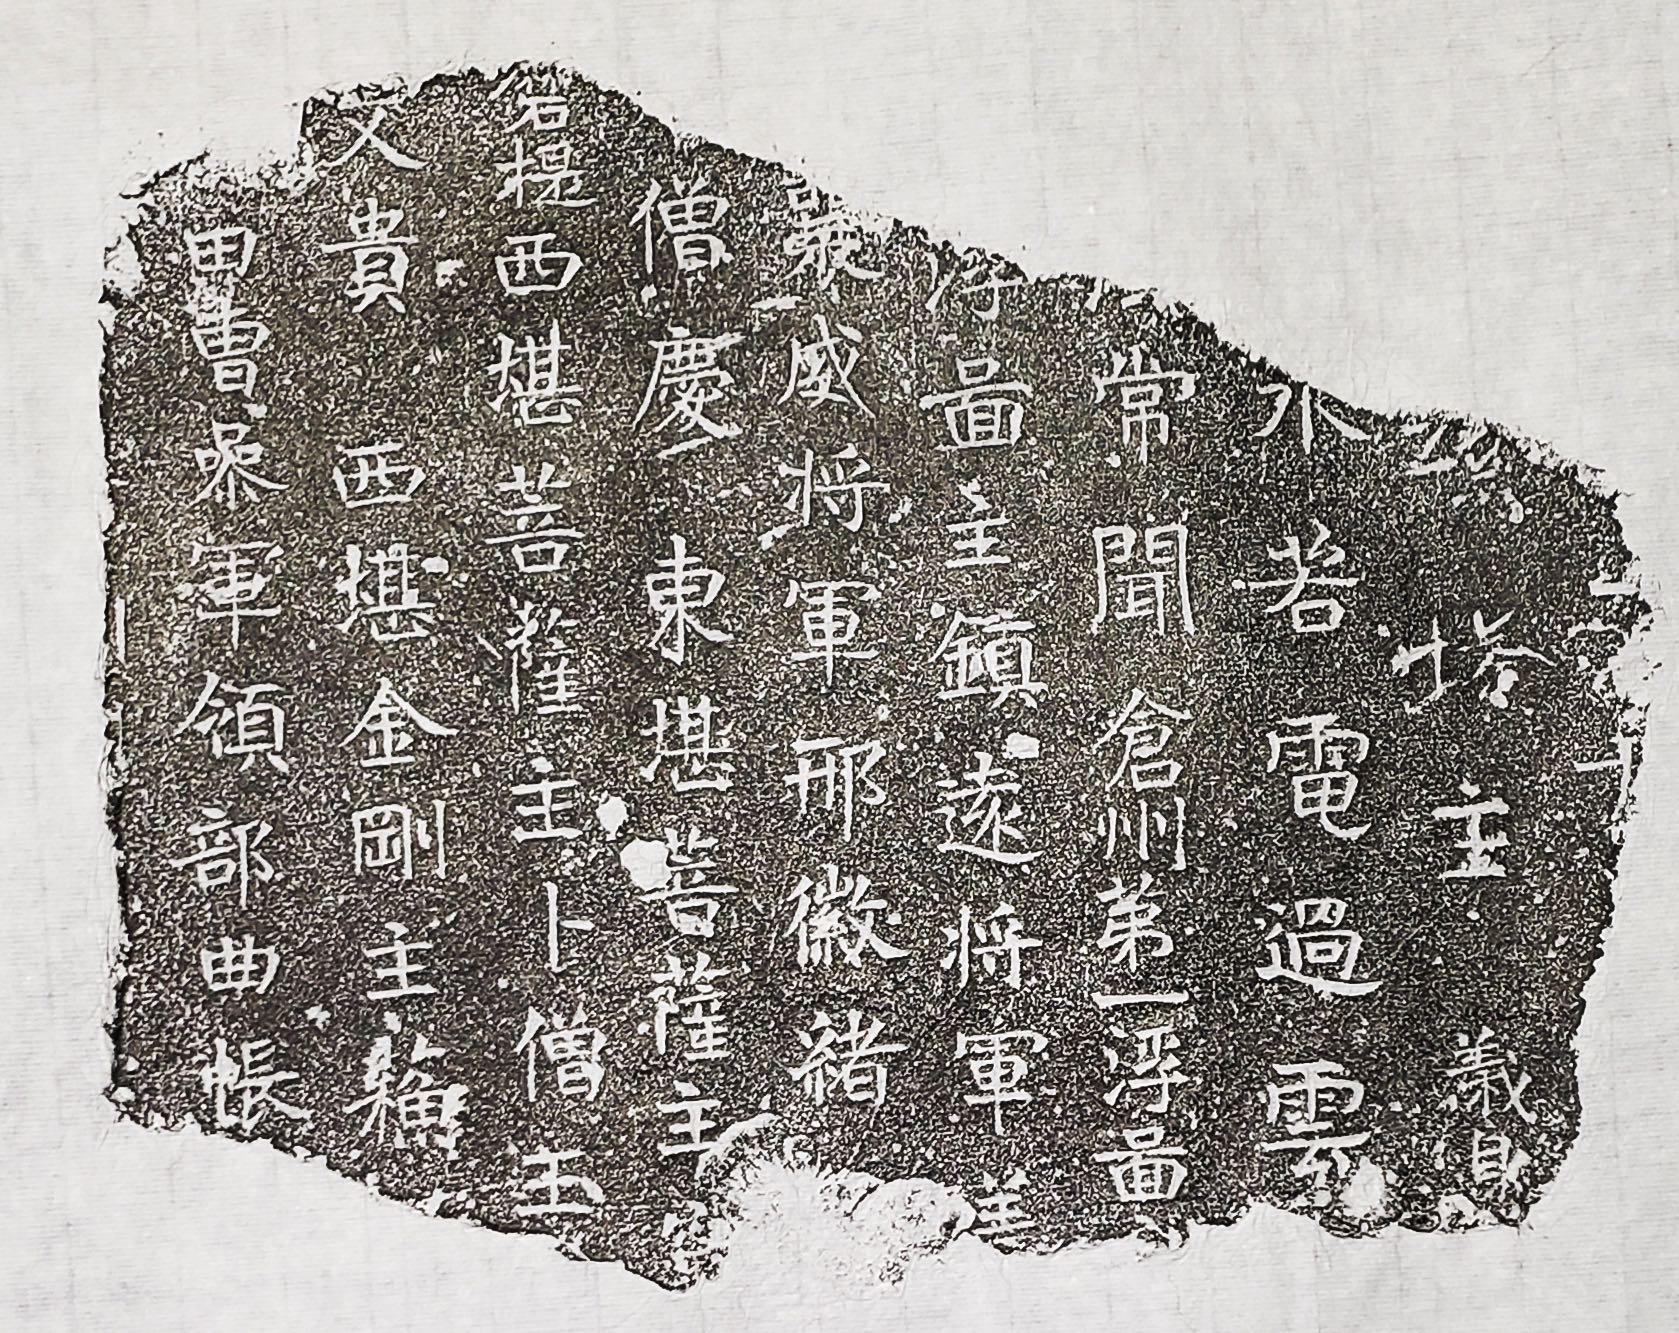 塔主 義
水者電過雲
常聞倉州第一浮啚
浮啚主鎮遠將軍
義威將軍邢徽緒
僧慶東堪菩薩主
提西堪菩薩主卜僧玉
文貴 西堪金剛主
甲曹叅軍領部曲帳